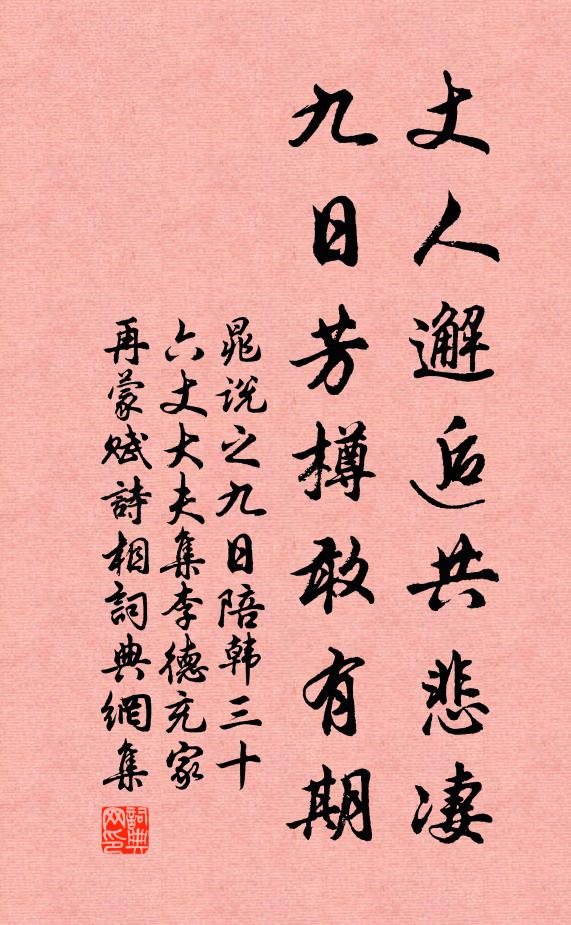 丈人邂逅共悲凄
九日芳樽敢有期
晁说之九日陪韩三十
六丈大夫集李德充家
再蒙赋詩相詞典網集
詞典网印